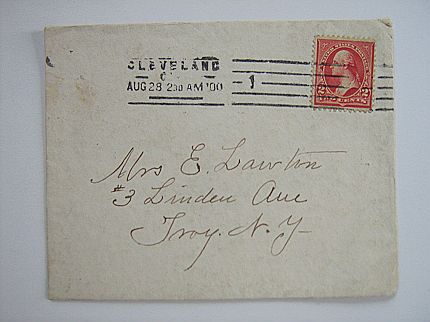 CLEVELAND
O.
AUG 28 230 AM '00
1
2 TWO CENTS 2
Mrs E. Lawton
#3 Linden Ave
Troy. N. Y